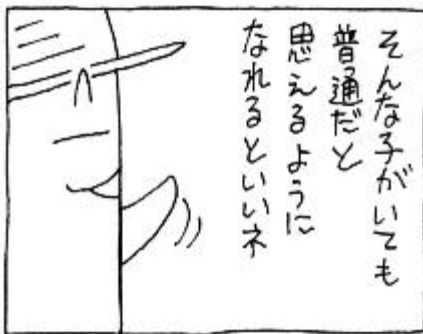 そんな子がいても
普通だと
思えるように
なれるといいネ